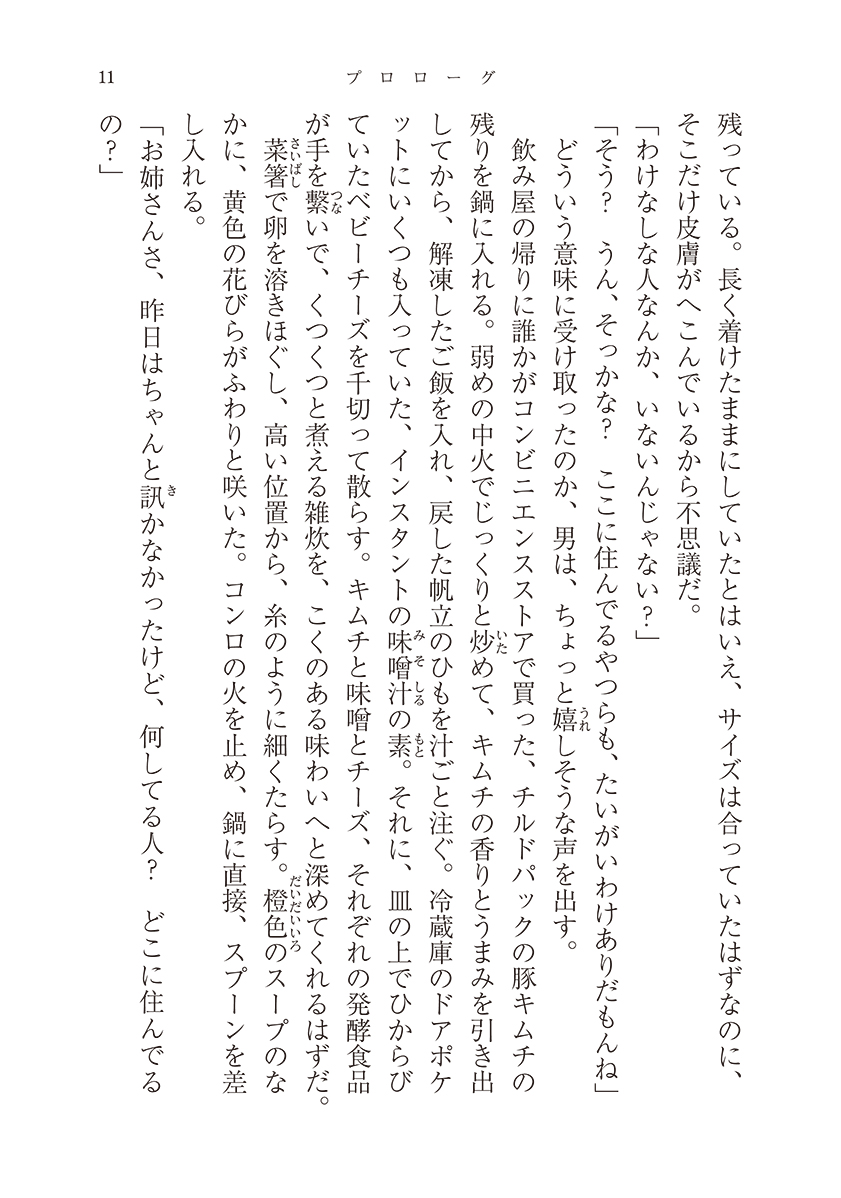 11
プロローグ
残っている。長く着けたままにしていたとはいえ、サイズは合っていたはずなのに、
そこだけ皮膚がへこんでいるから不思議だ。
「わけなしな人なんか、いないんじゃない？」
「そう？　うん、そっかな？　ここに住んでるやつらも、たいがいわけありだもんね」
どういう意味に受け取ったのか、男は、ちょっと嬉しそうな声を出す。
飲み屋の帰りに誰かがコンビニエンスストアで買った、チルドパックの豚キムチの
残りを鍋に入れる。弱めの中火でじっくりと炒めて、キムチの香りとうまみを引き出
してから、解凍したご飯を入れ、戻した帆立のひもを汁ごと注ぐ。冷蔵庫のドアポケ
ットにいくつも入っていた、インスタントの味噌汁の素。それに、皿の上でひからび
ていたベビーチーズを千切って散らす。キムチと味噌とチーズ、それぞれの発酵食品
が手を繫いで、くつくつと煮える雑炊を、こくのある味わいへと深めてくれるはずだ。
菜箸で卵を溶きほぐし、高い位置から、糸のように細くたらす。橙色のスープのな
かに、黄色の花びらがふわりと咲いた。コンロの火を止め、鍋に直接、スプーンを差
し入れる。
「お姉さんさ、昨日はちゃんと訊かなかったけど、何してる人？　どこに住んでる
の？」
うれ
いた
みそしる
もと
つな
さいばし
だいだいいろ
き